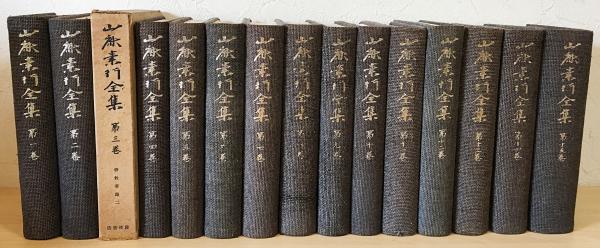 山鹿素行全集 第一巻
山鹿素行全集 第二巻
山鹿素行全集 第三巻
山鹿素行全集 第四巻
山鹿素行全集 第五巻
山鹿素行全集 第六巻
山鹿素行全集 第七巻
山鹿素行全集 第八巻
山鹿素行全集 第九巻
山鹿素行全集 第十巻
山鹿素行全集 第十一巻
山鹿素行全集 第十二巻
山鹿素行全集 第十三巻
山鹿素行全集 第十四巻
山鹿素行全集 第十五巻